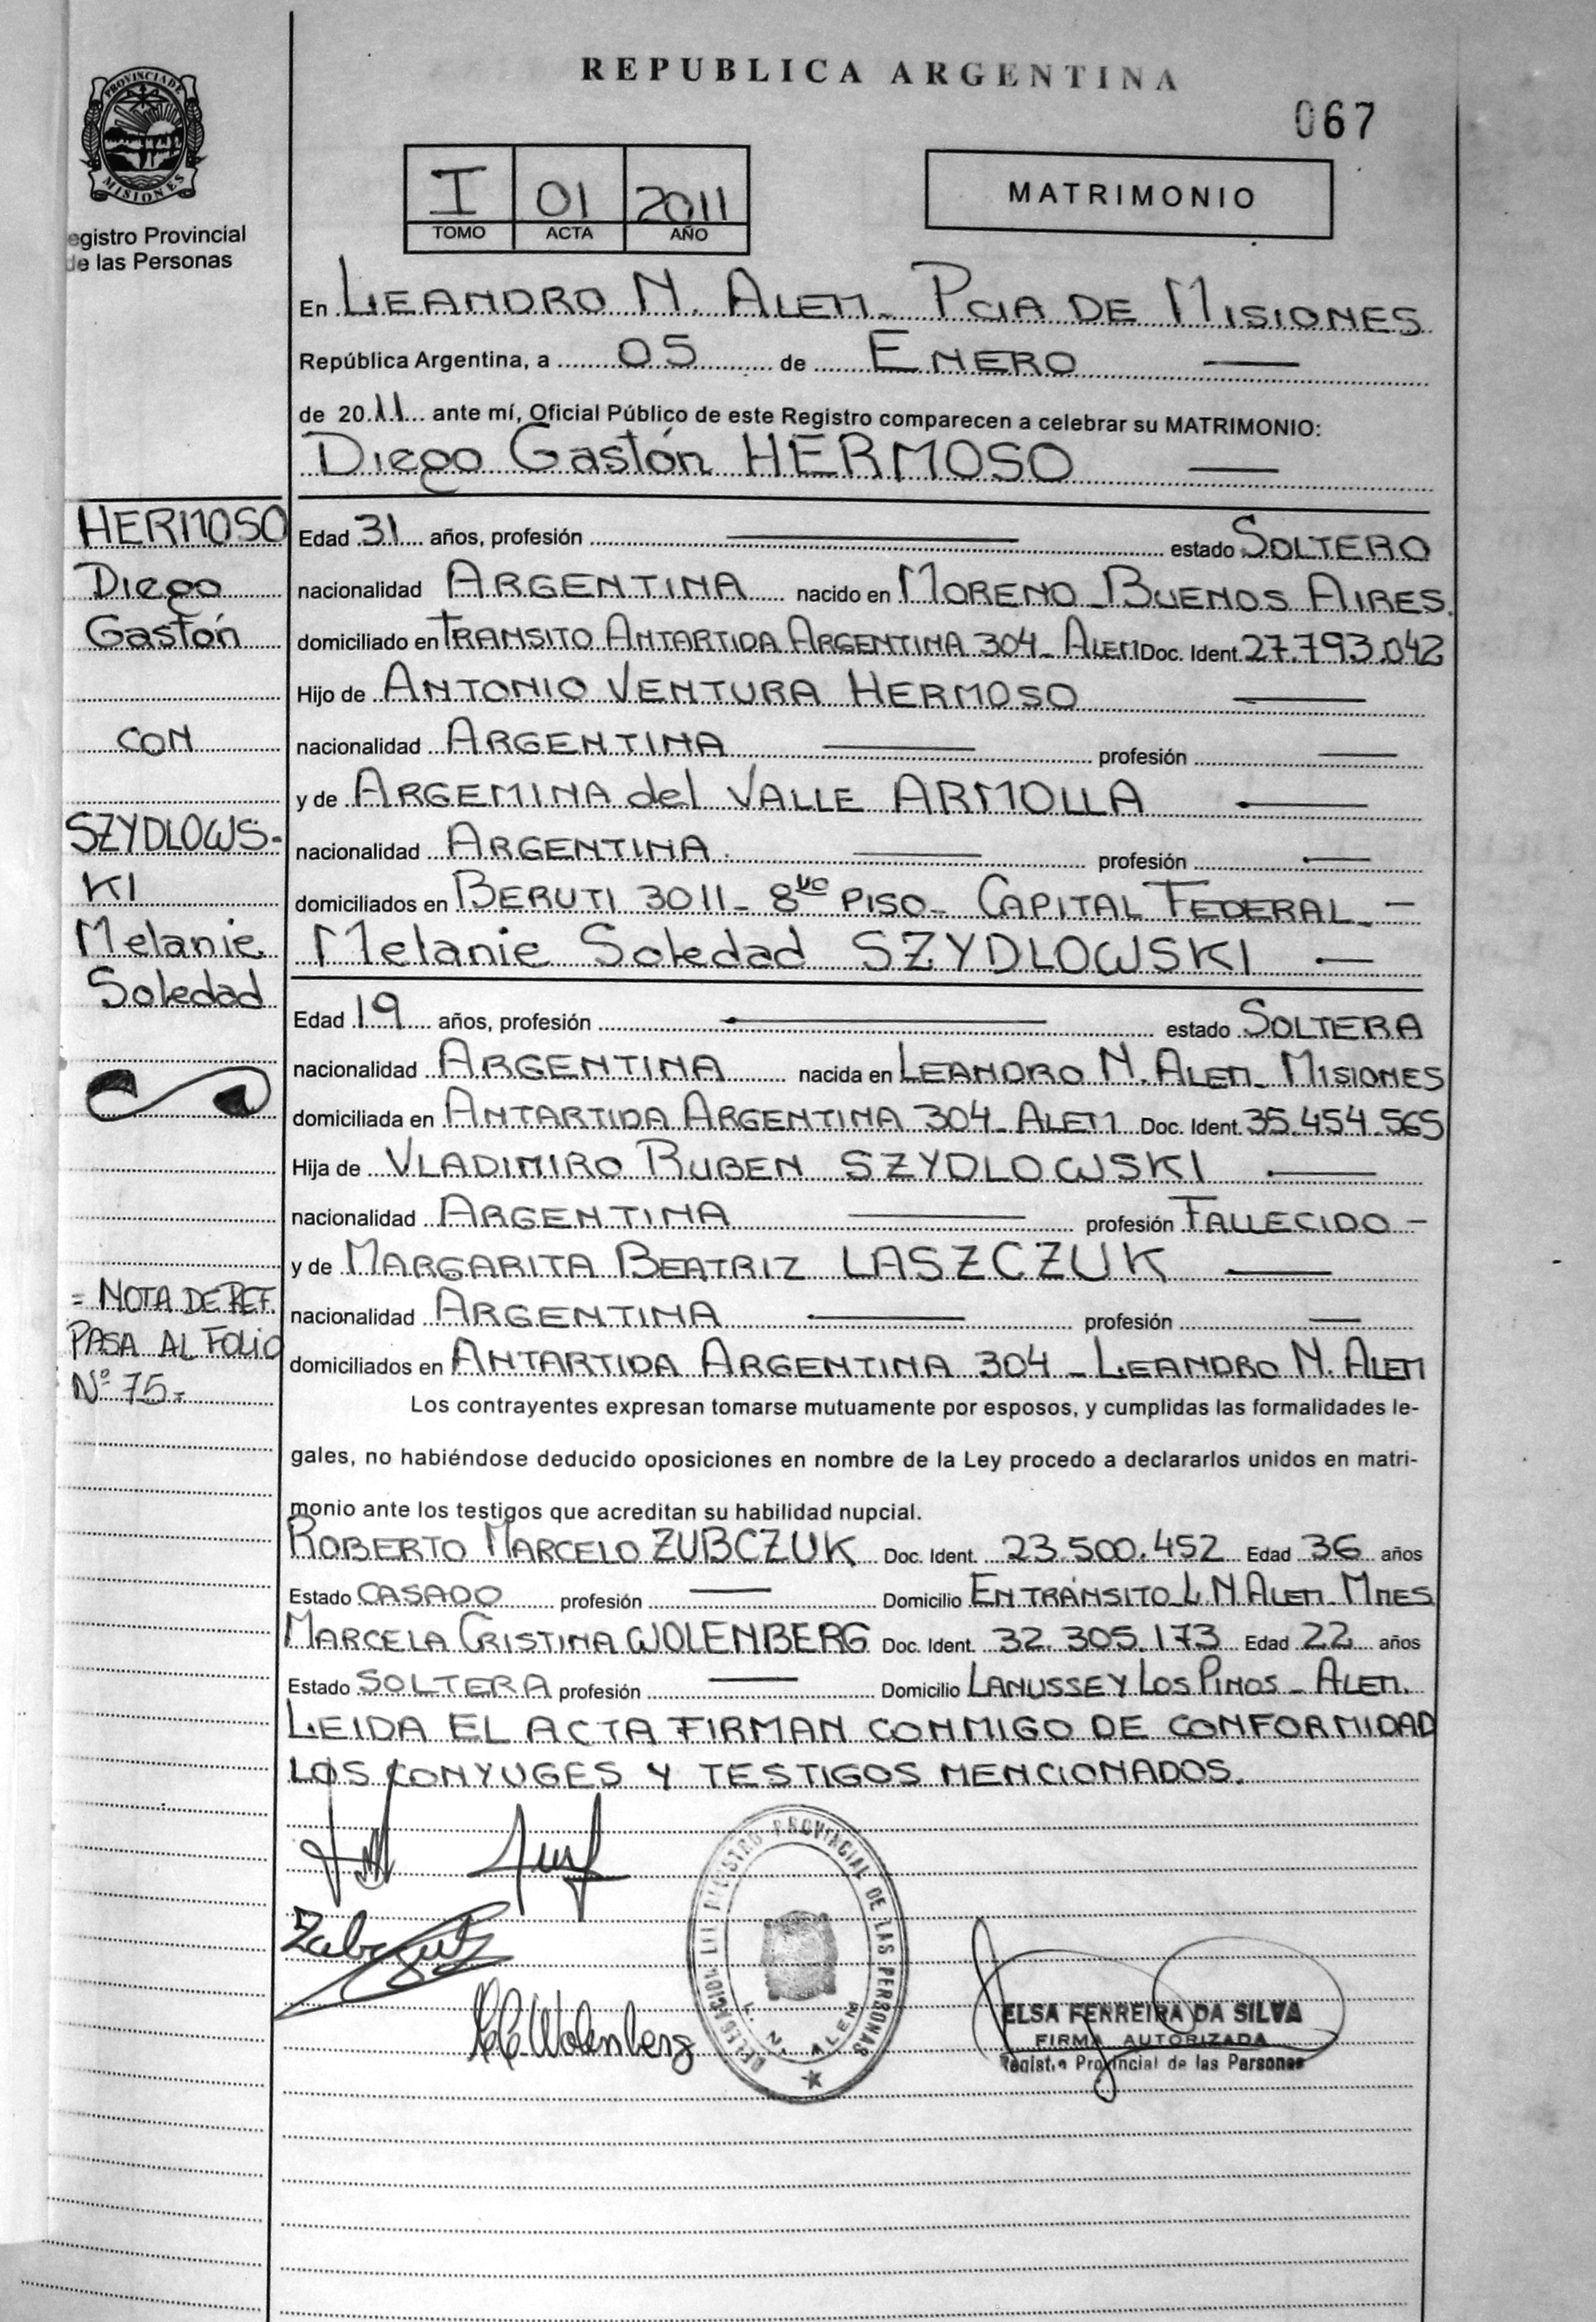 REPUBLICA ARGENTINA
067
PROVINCIA DE
MISIONES
egistro Provincial
de las Personas
I 01 2011
TOMO ACTA AÑO
MATRIMONIO
En LEANDRO N. ALEM_ PCIA DE MISIONES
República Argentina, a 05 de ENERO
de 2011 ante mí, Oficial Público de este Registro comparecen a celebrar su MATRIMONIO:
Diego Gastón HERMOSO
HERMOSO
Diego
Gastón
CON
SZYDLOWS-
KI
Melanie
Soledad
= NOTA DE REF.
PASA AL FOLIO
Nº 75.-
Edad 31 años, profesión — estado SOLTERO
nacionalidad ARGENTINA nacido en MORENO_BUENOS AIRES.
domiciliado en TRANSITO ANTARTIDA ARGENTINA 304_ ALEM Doc. Ident. 27.793.042
Hijo de ANTONIO VENTURA HERMOSO —
nacionalidad ARGENTINA — profesión —
y de ARGEMINA del VALLE ARMOLLA —
nacionalidad ARGENTINA. — profesión —
domiciliados en BERUTI 3011_ 8vo PISO_ CAPITAL FEDERAL_ —
Melanie Soledad SZYDLOWSKI —
Edad 19 años, profesión — estado SOLTERA
nacionalidad ARGENTINA nacida en LEANDRO N. ALEM_ MISIONES
domiciliada en ANTARTIDA ARGENTINA 304_ ALEM Doc. Ident. 35.454.565
Hija de VLADIMIRO RUBEN SZYDLOWSKI —
nacionalidad ARGENTINA — profesión FALLECIDO —
y de MARGARITA BEATRIZ LASZCZUK —
nacionalidad ARGENTINA — profesión —
domiciliados en ANTARTIDA ARGENTINA 304_ LEANDRO N. ALEM
Los contrayentes expresan tomarse mutuamente por esposos, y cumplidas las formalidades le-
gales, no habiéndose deducido oposiciones en nombre de la Ley procedo a declararlos unidos en matri-
monio ante los testigos que acreditan su habilidad nupcial.
ROBERTO MARCELO ZUBCZUK Doc. Ident. 23.500.452 Edad 36 años
Estado CASADO profesión — Domicilio EN TRÁNSITO_L.N.ALEM_MNES
MARCELA CRISTINA WOLENBERG Doc. Ident. 32.305.173 Edad 22 años
Estado SOLTERA profesión — Domicilio LANUSSE Y LOS PINOS_ ALEM.
LEIDA EL ACTA FIRMAN CONMIGO DE CONFORMIDAD
LOS CONYUGES Y TESTIGOS MENCIONADOS.
Wolenberg
REGISTRO PROVINCIAL DE LAS PERSONAS
L. N. ALEM
ELSA FERREIRA DA SILVA
FIRMA AUTORIZADA
Regist.o Provincial de las Personas